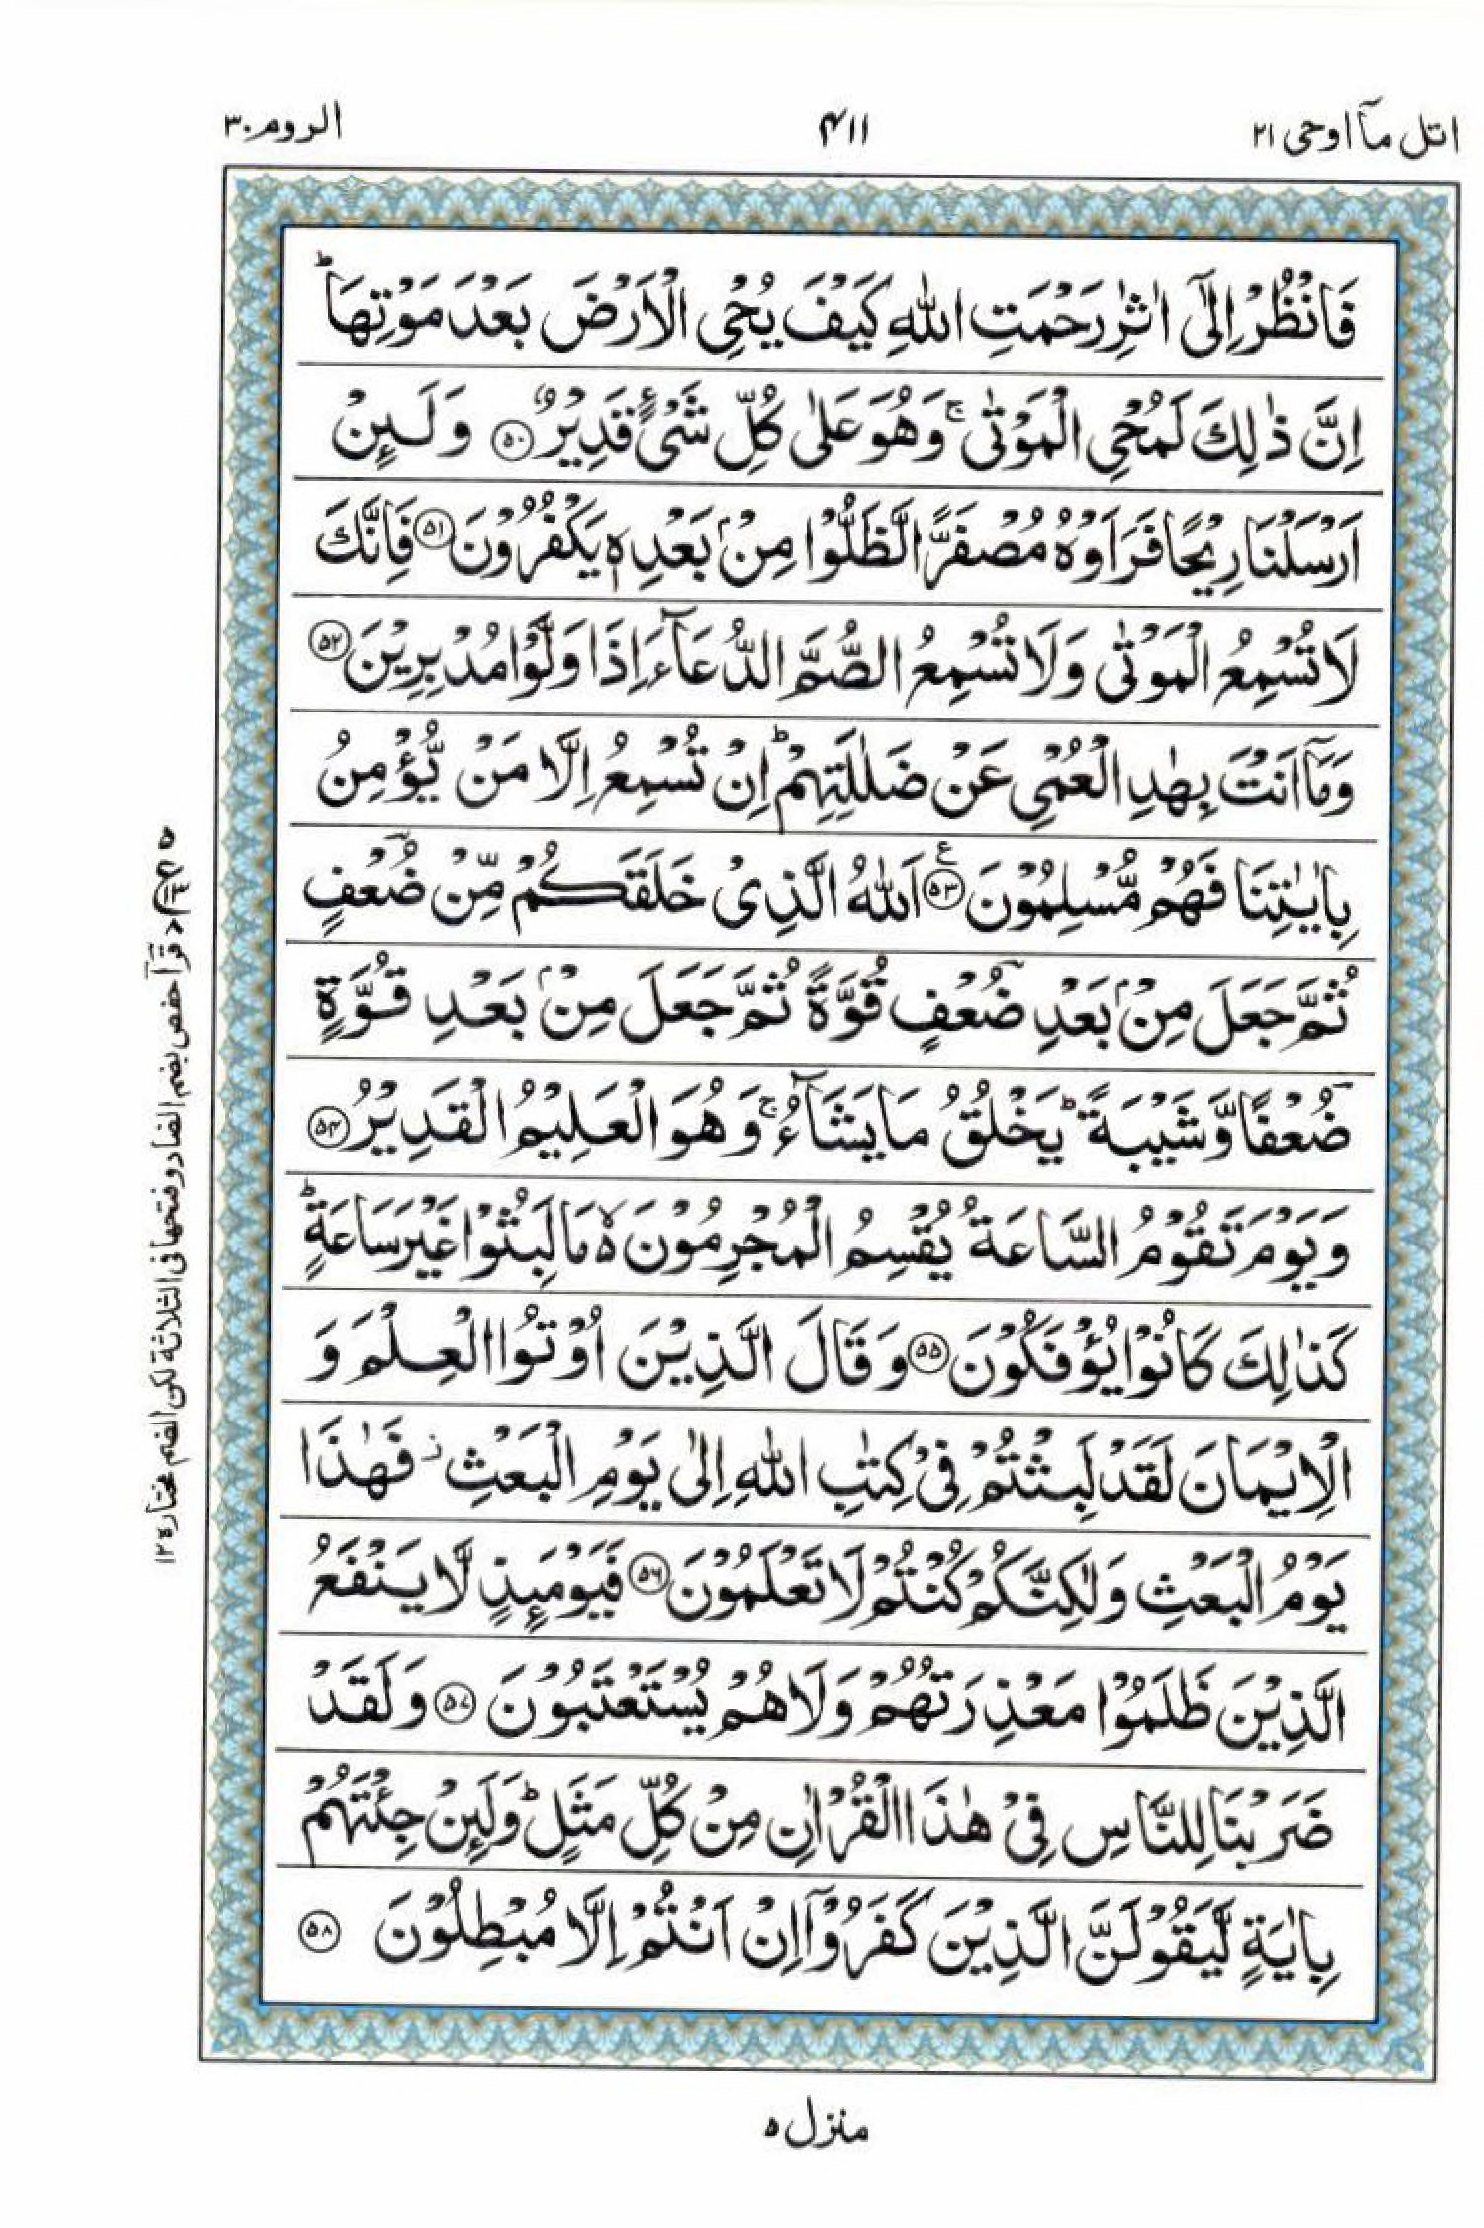 اتل مآ اوحی ۲۱
۴۱۱
الروم ۳۰
فَانْظُرْ اِلٰۤى اٰثٰرِ رَحْمَتِ اللّٰهِ كَيْفَ يُحْيِ الْاَرْضَ بَعْدَ مَوْتِهَا ؕ
اِنَّ ذٰلِكَ لَمُحْيِ الْمَوْتٰى ۚ وَهُوَ عَلٰى كُلِّ شَيْءٍ قَدِيْرٌ ۝۵۰ وَلَىِٕنْ
اَرْسَلْنَا رِيْحًا فَرَاَوْهُ مُصْفَرًّا لَّظَلُّوْا مِنْۢ بَعْدِهٖ يَكْفُرُوْنَ ۝۵۱ فَاِنَّكَ
لَا تُسْمِعُ الْمَوْتٰى وَلَا تُسْمِعُ الصُّمَّ الدُّعَآءَ اِذَا وَلَّوْا مُدْبِرِيْنَ ۝۵۲
وَمَاۤ اَنْتَ بِهٰدِ الْعُمْيِ عَنْ ضَلٰلَتِهِمْ ؕ اِنْ تُسْمِعُ اِلَّا مَنْ يُّؤْمِنُ
بِاٰيٰتِنَا فَهُمْ مُّسْلِمُوْنَ ۝۵۳ ع اَللّٰهُ الَّذِيْ خَلَقَكُمْ مِّنْ ضُعْفٍ
ثُمَّ جَعَلَ مِنْۢ بَعْدِ ضُعْفٍ قُوَّةً ثُمَّ جَعَلَ مِنْۢ بَعْدِ قُوَّةٍ
ضُعْفًا وَّشَيْبَةً ؕ يَخْلُقُ مَا يَشَآءُ ۚ وَهُوَ الْعَلِيْمُ الْقَدِيْرُ ۝۵۴
وَيَوْمَ تَقُوْمُ السَّاعَةُ يُقْسِمُ الْمُجْرِمُوْنَ ۙ۬ مَا لَبِثُوْا غَيْرَ سَاعَةٍ ؕ
كَذٰلِكَ كَانُوْا يُؤْفَكُوْنَ ۝۵۵ وَقَالَ الَّذِيْنَ اُوْتُوا الْعِلْمَ وَ
الْاِيْمَانَ لَقَدْ لَبِثْتُمْ فِيْ كِتٰبِ اللّٰهِ اِلٰى يَوْمِ الْبَعْثِ ز فَهٰذَا
يَوْمُ الْبَعْثِ وَلٰكِنَّكُمْ كُنْتُمْ لَا تَعْلَمُوْنَ ۝۵۶ فَيَوْمَىِٕذٍ لَّا يَنْفَعُ
الَّذِيْنَ ظَلَمُوْا مَعْذِرَتُهُمْ وَلَا هُمْ يُسْتَعْتَبُوْنَ ۝۵۷ وَلَقَدْ
ضَرَبْنَا لِلنَّاسِ فِيْ هٰذَا الْقُرْاٰنِ مِنْ كُلِّ مَثَلٍ ؕ وَلَىِٕنْ جِئْتَهُمْ
بِاٰيَةٍ لَّيَقُوْلَنَّ الَّذِيْنَ كَفَرُوْۤا اِنْ اَنْتُمْ اِلَّا مُبْطِلُوْنَ ۝۵۸
قرآ حفص بضم الضاد وفتحها فی الثلاثة لكن الضم مختاره ۱۲
منزل ۵